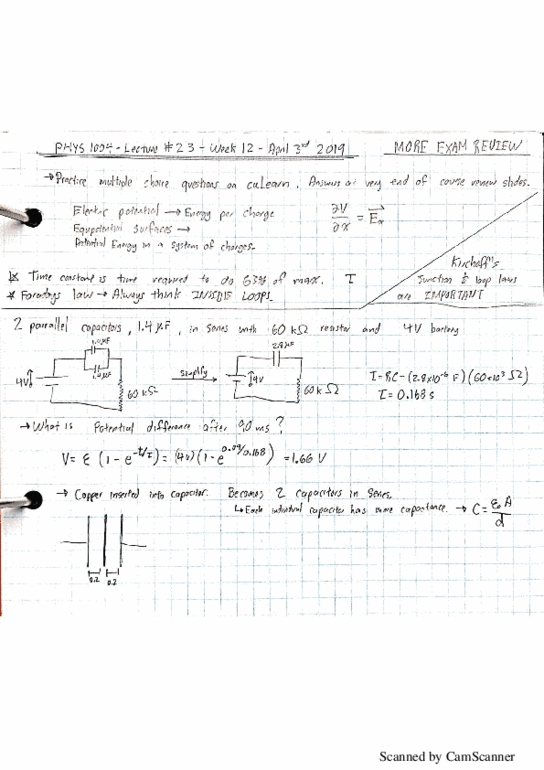 PHYS 1004 - Lecture #23 - Week 12 - April 3rd 2019
MORE EXAM REVIEW
→ Practice multiple choice questions on cuLearn. Answers at very end of course review slides.
Electric potential → Energy per charge
∂V/∂x = Ex
Equipotential surfaces →
Potential Energy in a system of charges.
Kirchoff's
Junction & loop laws
are IMPORTANT
* Time constant is time required to do 63% of max. τ
* Faradays law → Always think INSIDE LOOPS.
2 parallel capacitors, 1.4 μF, in series with 60 kΩ resistor and 4V battery
1.4μF
1.4μF
4V
60 kΩ
simplify
2.8μF
4V
60 kΩ
τ = RC = (2.8×10⁻⁶ F)(60×10³ Ω)
τ = 0.168 s
→ What is Potential difference after 90 ms?
V = ε (1 - e^-t/τ) = (4v)(1 - e^0.09/0.168) = 1.66 V
→ Copper inserted into capacitor. Becomes 2 capacitors in series.
↳ Each individual capacitor has same capacitance. → C = ε₀A/d
0.2 0.2
Scanned by CamScanner